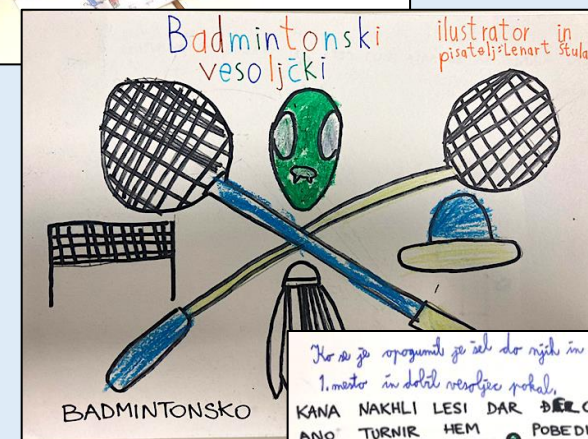 Badmintonski
vesoljčki
ilustrator in
pisatelj:Lenart Štula
BADMINTONSKO
Ko se je opogumil je šel do njih in
1. mesto in dobil vesoljec pokal.
KANA NAKHLI LESI DAR
ANO TURNIR HEM POBEDI